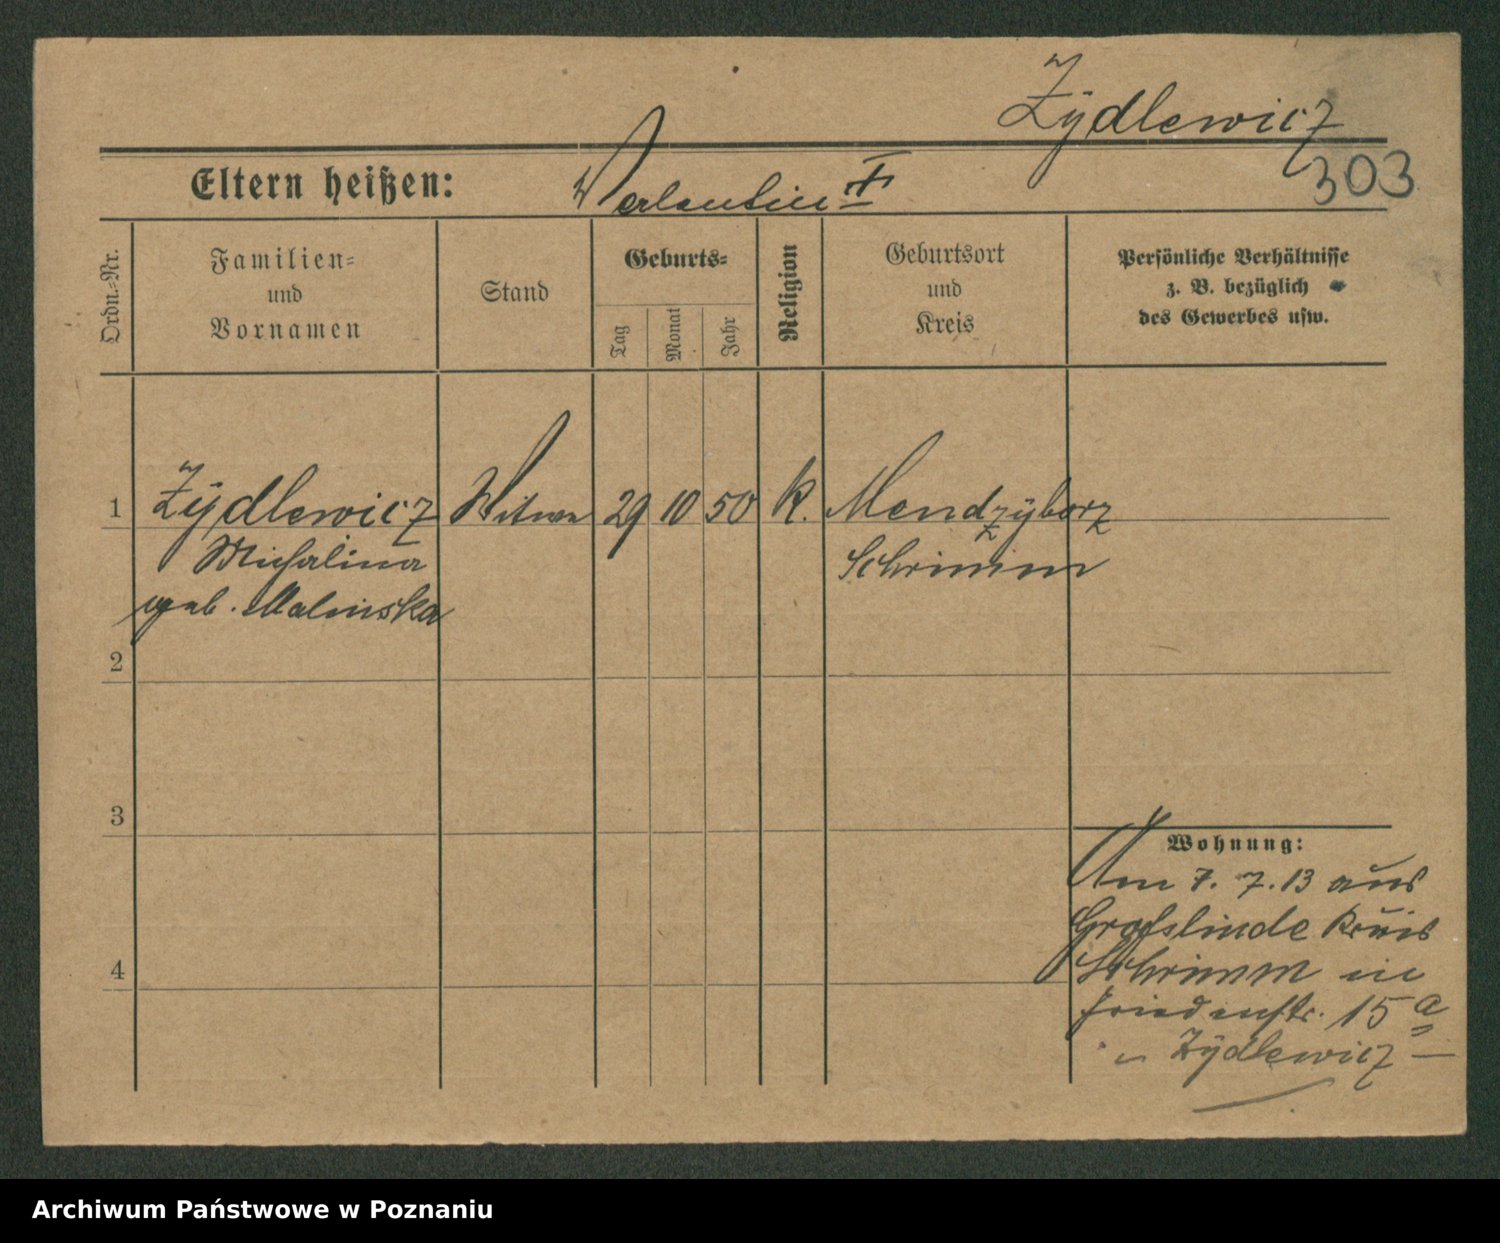 Zÿdlewicz
303
Eltern heißen: Valentin †
Ordn.-Nr.
Familien-
und
Vornamen
Stand
Geburts-
Tag
Monat
Jahr
Religion
Geburtsort
und
Kreis
Persönliche Verhältnisse
z. B. bezüglich
des Gewerbes usw.
1 Zÿdlewicz Witwe 29 10 50 k. Mendzÿborz
Michalina Schrimm
geb. Malinska
2
3
Wohnung:
Am 7. 7. 13 aus
Grofslinde Kreis
Schrimm in
4
Friedenstr. 15 a
Zÿdlewicz
Archiwum Państwowe w Poznaniu